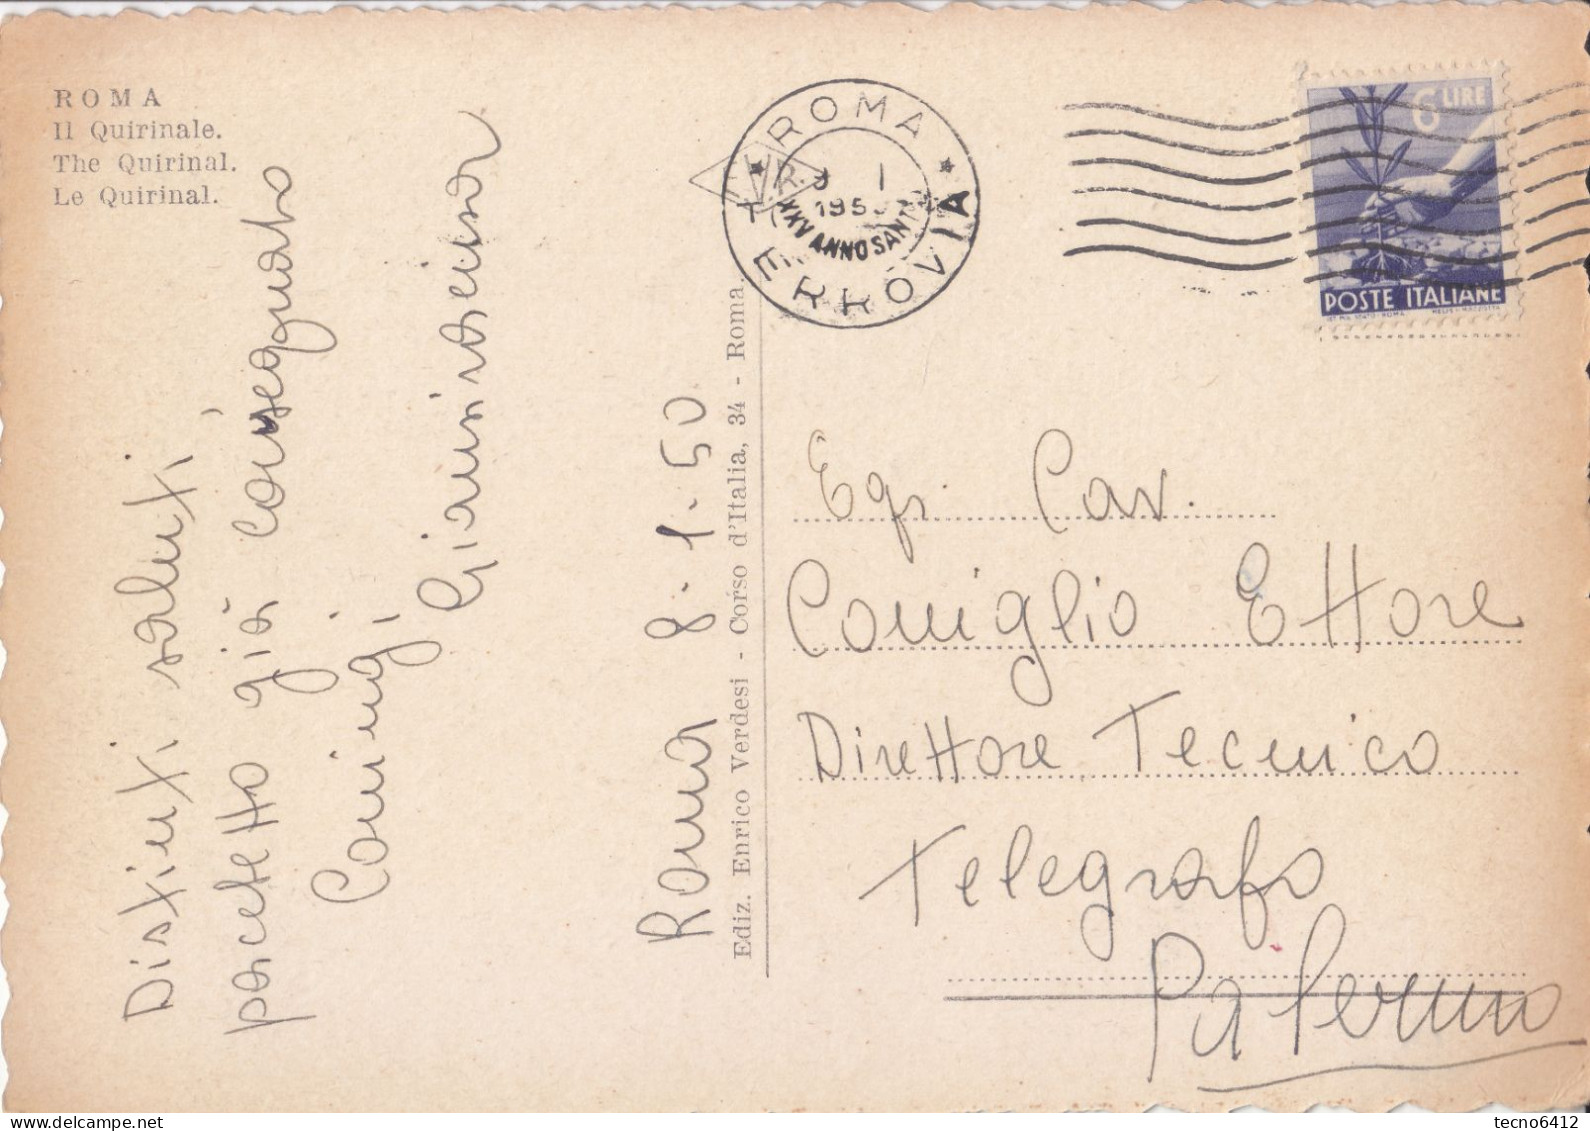 ROMA
Il Quirinale.
The Quirinal.
Le Quirinal.
ROMA
9 1
195
XXV ANNO SANT
FERROVIA
6 LIRE
POSTE ITALIANE
Distinti saluti,
pacchetto già conseguato
Coniugi
Roma 8.1.50
Ediz. Enrico Verdesi - Corso d'Italia, 34 - Roma
Egr. Cav.
Coniglio Ettore
Direttore Tecnico
Telegrafo
Palermo
delcampe.net
tecno6412